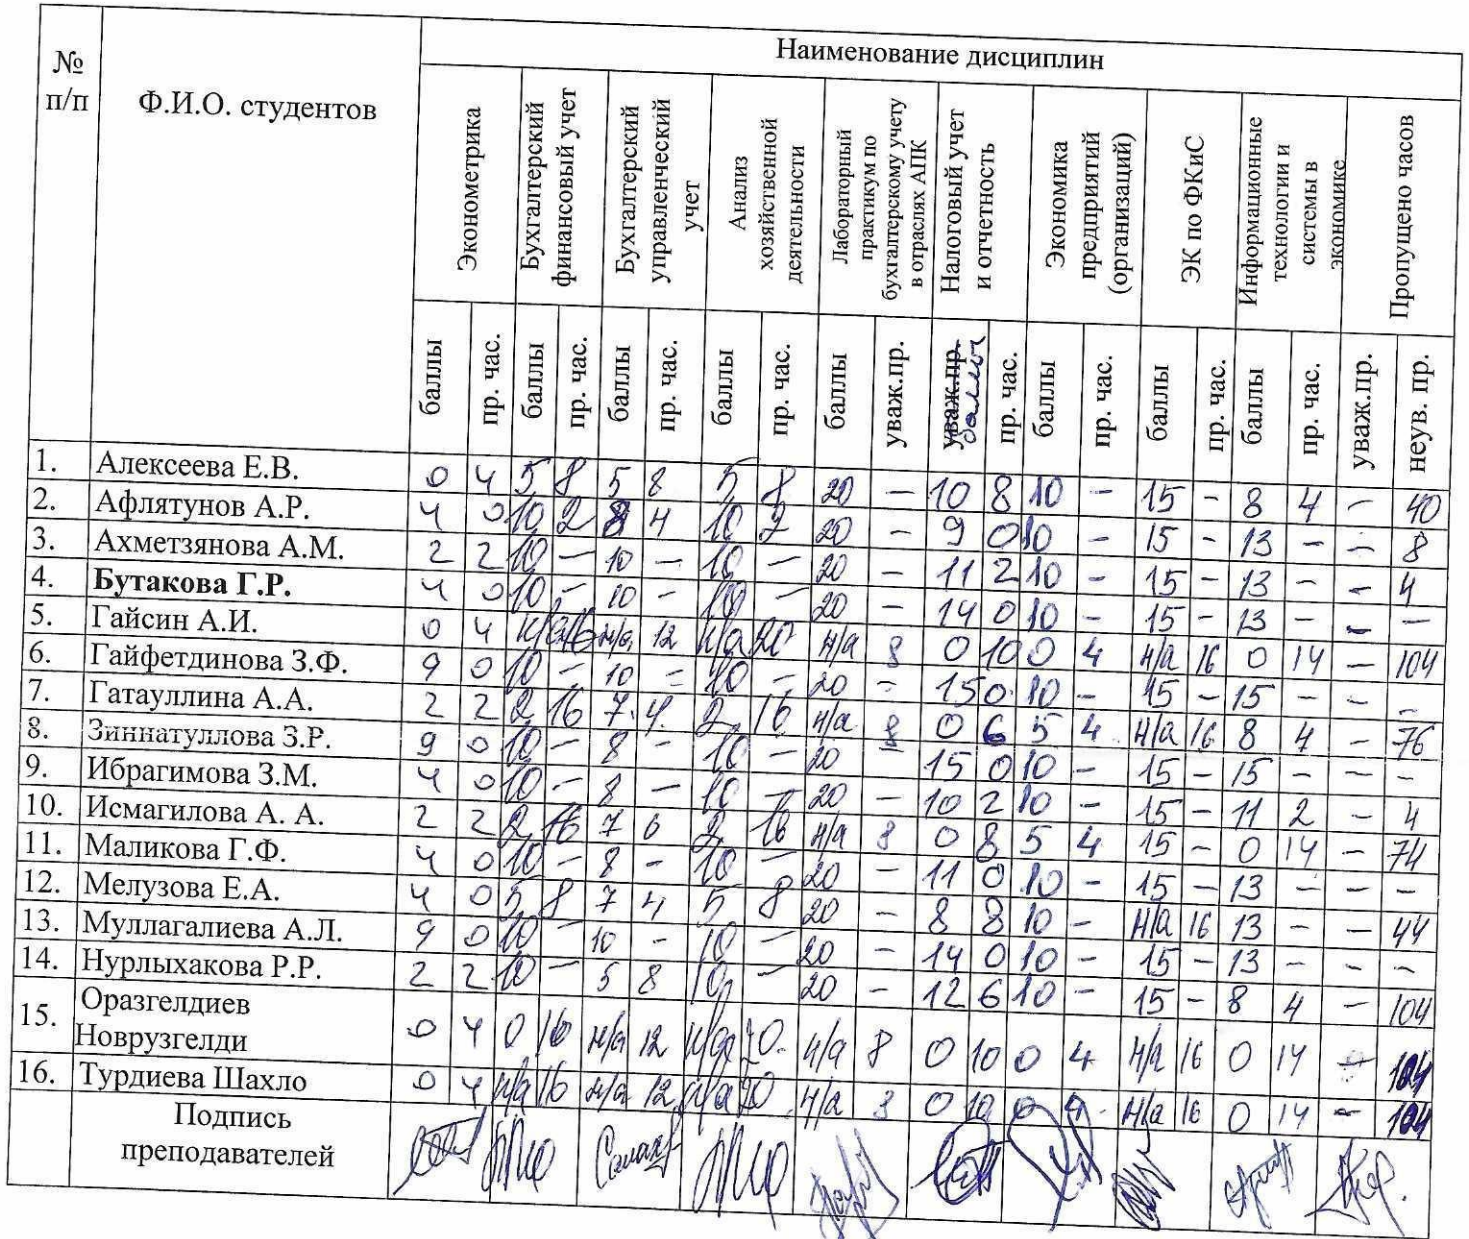 № п/п
Ф.И.О. студентов
Наименование дисциплин
Эконометрика
Бухгалтерский финансовый учет
Бухгалтерский управленческий учет
Анализ хозяйственной деятельности
Лабораторный практикум по бухгалтерскому учету в отраслях АПК
Налоговый учет и отчетность
Экономика предприятий (организаций)
ЭК по ФКиС
Информационные технологии и системы в экономике
Пропущено часов
баллы пр. час. баллы пр. час. баллы пр. час. баллы пр. час. баллы уваж.пр. уваж.пр. баллы пр. час. баллы пр. час. баллы пр. час. баллы пр. час. уваж.пр. неув. пр.
1. Алексеева Е.В. 0 4 5 8 5 8 5 8 20 – 10 8 10 – 15 – 8 4 – 40
2. Афлятунов А.Р. 4 0 10 2 8 4 10 2 20 – 9 0 10 – 15 – 13 – – 8
3. Ахметзянова А.М. 2 2 10 – 10 – 10 – 20 – 11 2 10 – 15 – 13 – – 4
4. Бутакова Г.Р. 4 0 10 – 10 – 10 – 20 – 14 0 10 – 15 – 13 – – –
5. Гайсин А.И. 0 4 н/а 16 н/а 12 н/а 20 н/а 8 0 10 0 4 н/а 16 0 14 – 104
6. Гайфетдинова З.Ф. 9 0 10 – 10 – 10 – 20 – 15 0 10 – 15 – 15 – – –
7. Гатауллина А.А. 2 2 2 16 7 4 2 16 н/а 8 0 6 5 4 н/а 16 8 4 – 76
8. Зиннатуллова З.Р. 9 0 10 – 8 – 10 – 20 15 0 10 – 15 – 15 – – –
9. Ибрагимова З.М. 4 0 10 – 8 – 10 – 20 – 10 2 10 – 15 – 11 2 – 4
10. Исмагилова А. А. 2 2 2 16 7 6 2 16 н/а 8 0 8 5 4 15 – 0 14 – 74
11. Маликова Г.Ф. 4 0 10 – 8 – 10 – 20 – 11 0 10 – 15 – 13 – – –
12. Мелузова Е.А. 4 0 5 8 7 4 5 8 20 – 8 8 10 – н/а 16 13 – – 44
13. Муллагалиева А.Л. 9 0 10 – 10 – 10 – 20 – 14 0 10 – 15 – 13 – – –
14. Нурлыхакова Р.Р. 2 2 10 – 5 8 10 – 20 – 12 6 10 – 15 – 8 4 – 104
15. Оразгелдиев Новрузгелди 0 4 0 16 н/а 12 н/а 20 н/а 8 0 10 0 4 н/а 16 0 14 – 104
16. Турдиева Шахло 0 4 н/а 16 н/а 12 н/а 20 н/а 8 0 10 0 4 н/а 16 0 14 – 104
Подпись преподавателей